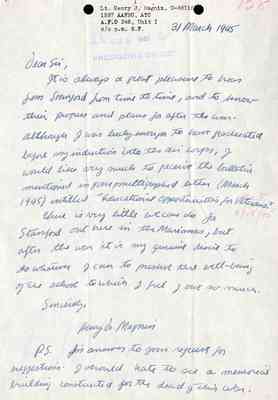 Lt. Henry J. Magnin, O-8611
1537 AAFBU, ATC
A.P.O 246, Unit 1
c/o p.m. S.F.
31 March 1945
Dear Sir,
It is always a great pleasure to hear
from Stanford from time to time, and to know
their progress and plans for after the war.
Although I was lucky enough to have graduated
before my induction into the air corps, I
would like very much to receive the bulletin
mentioned in your mimeographed letter (March
1945) entitled "Educational opportunities for Veterans."
There is very little we can do for
Stanford out here in the Marianas, but
after the war it is my genuine desire to
do whatever I can to preserve the well-being
of the school to which I feel I owe so much.
Sincerely,
Henry J. Magnin
P.S. In answer to your request for
suggestions. I would hate to see a memorial
building constructed for the dead of this war.